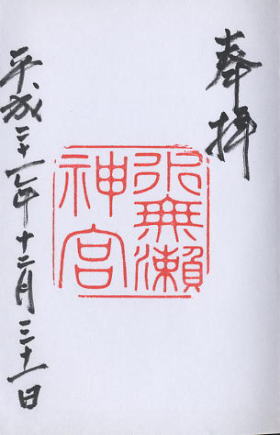 奉拝
水無瀬
神宮
平成二十一年十二月三十一日